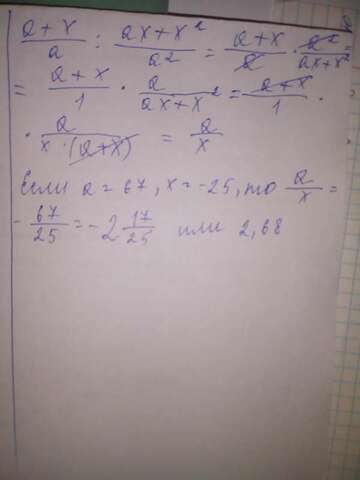 a+x/a : ax+x²/a² = a+x/a · a²/ax+x²
= a+x/1 · a/ax+x² = a+x/1 ·
· a/x·(a+x) = a/x
Если a = 67, x = -25, то a/x =
- 67/25 = -2 17/25 или 2,68